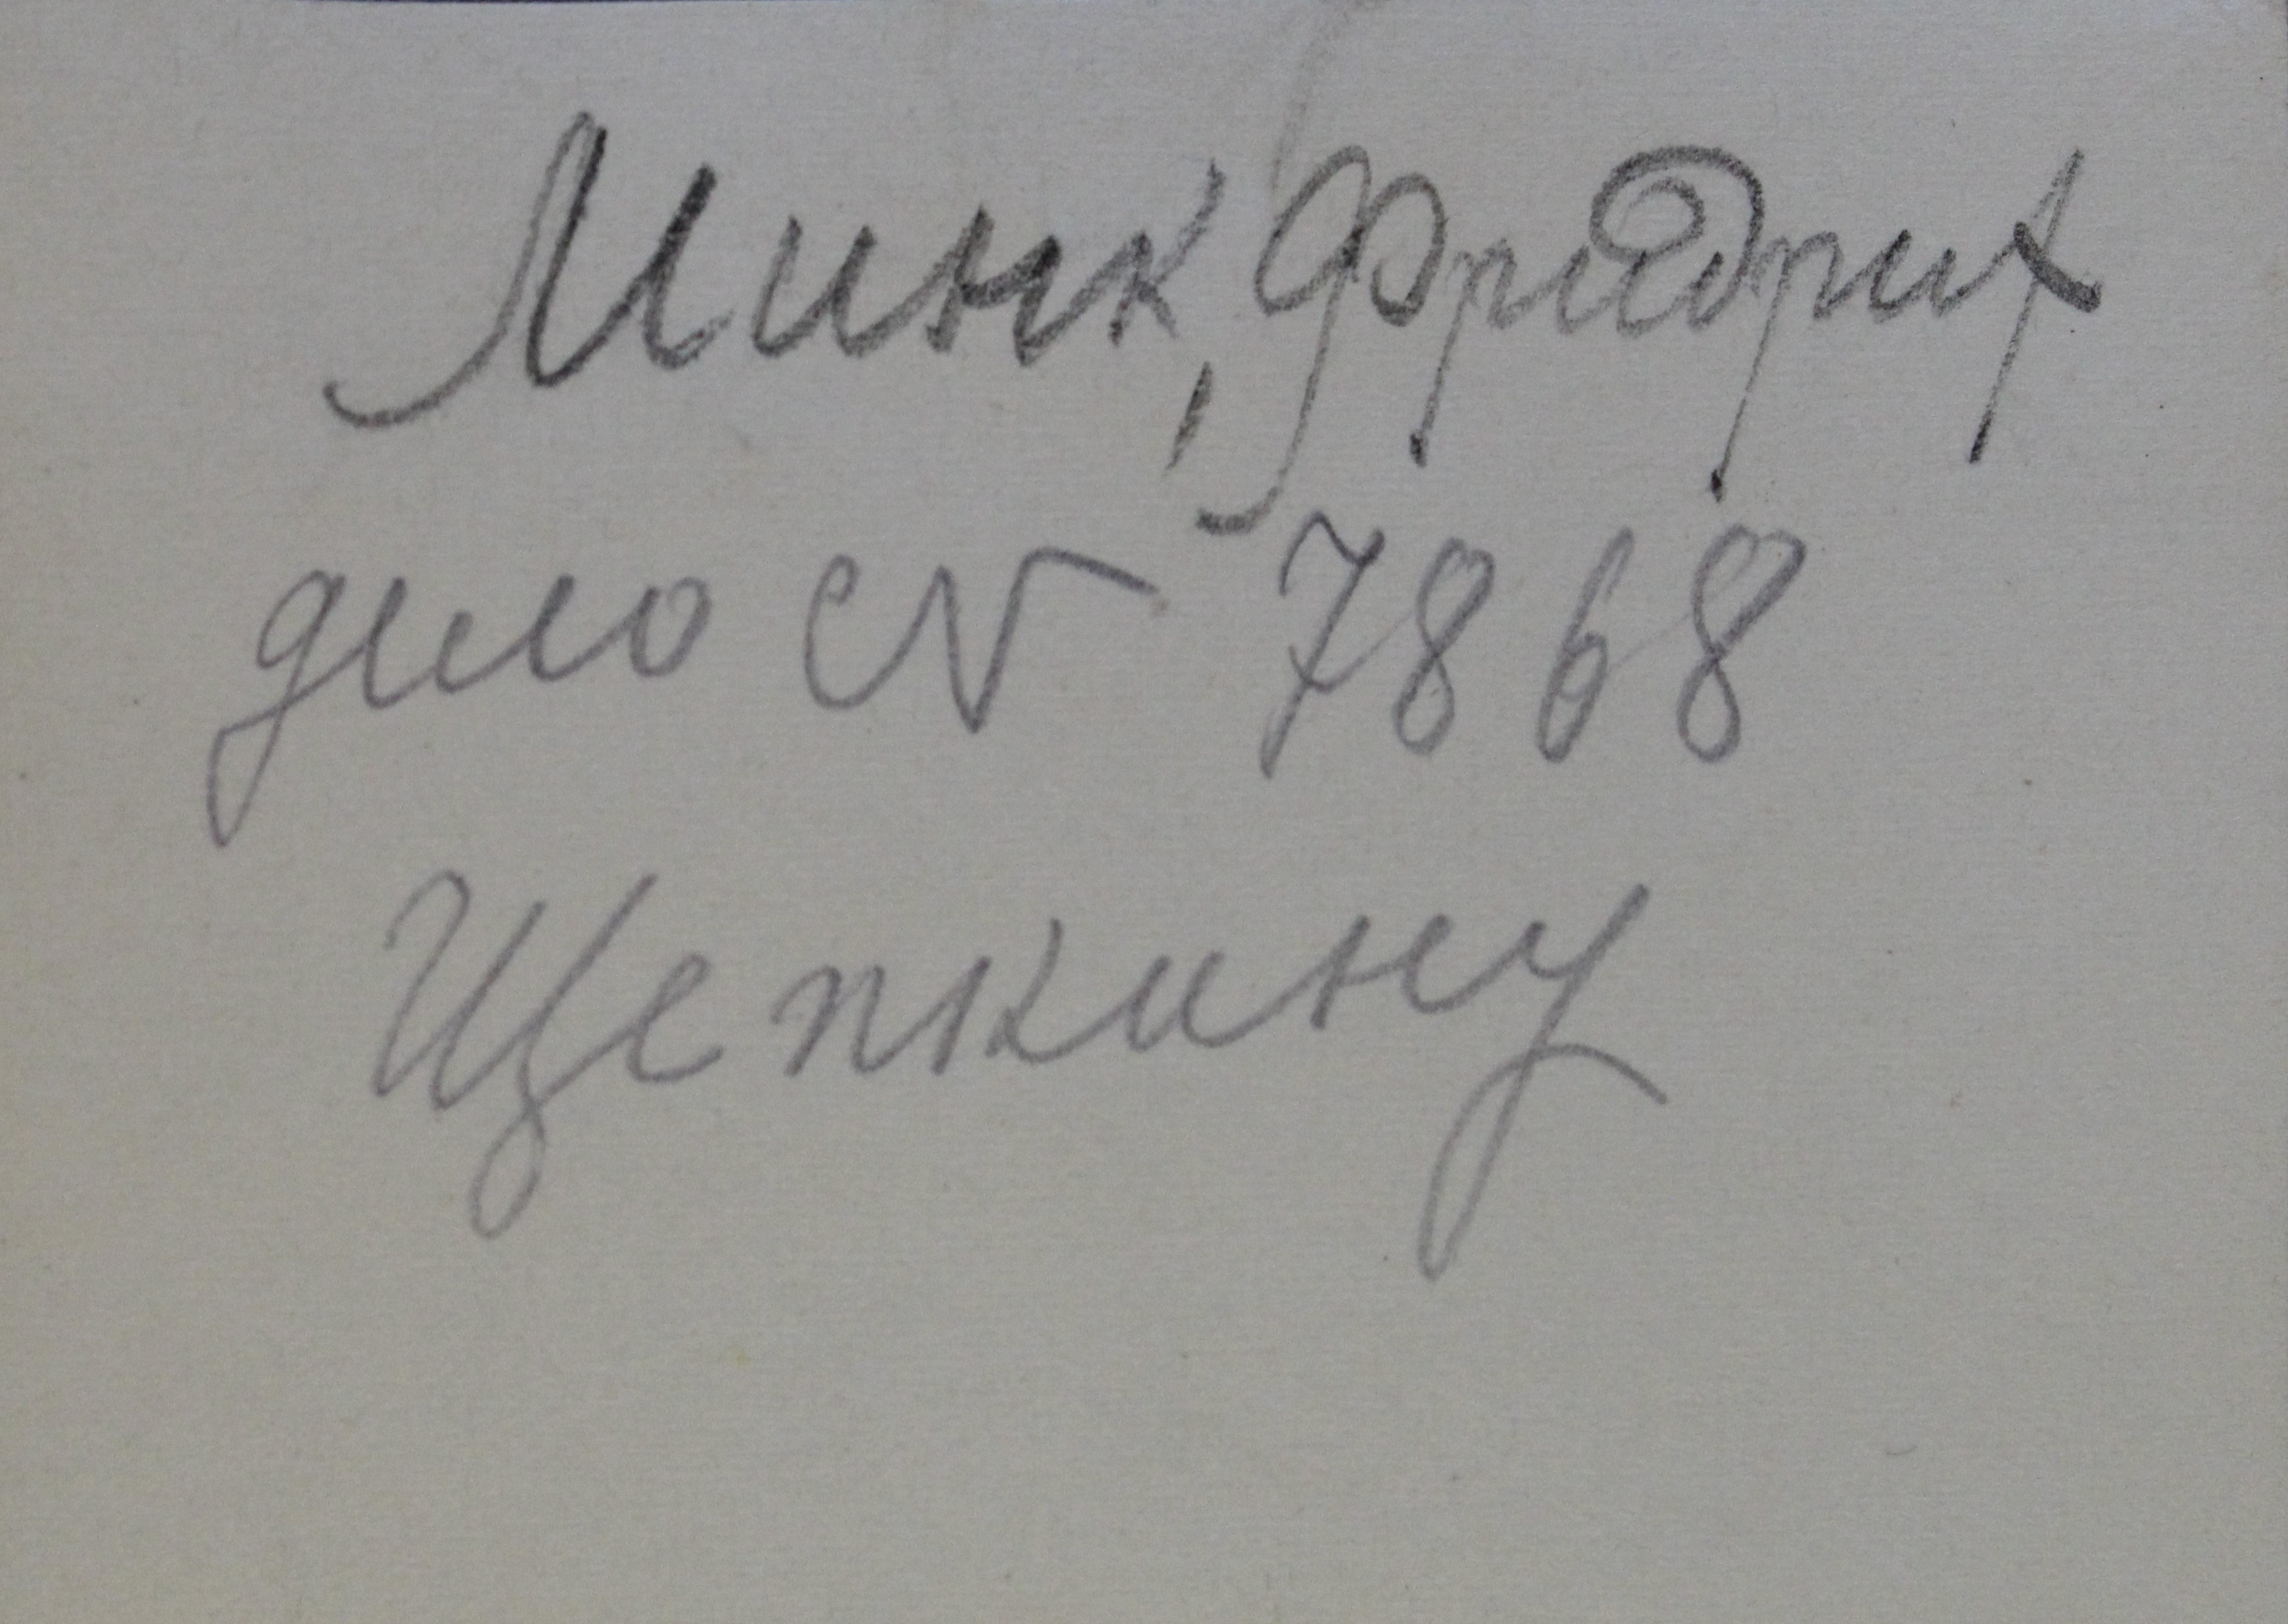 Минк, Фридрих
дело № 7868
Щепкину